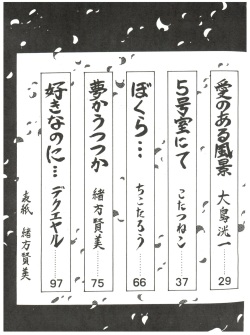 愛のある風景 大島洸一 ………29
5号室にて こたつねこ ………37
ぼくら… ちこたろう ………66
夢かうつつか 緒方賢美 ………75
好きなのに… デクエヤル ………97
表紙 緒方賢美